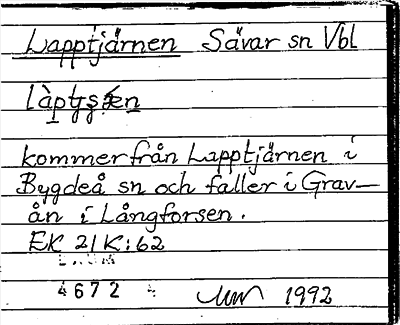 Lapptjärnen Sävar sn Vbl
kommer från Lapptjärnen i
Bygdeå sn och faller i Grav-
ån i Långforsen.
EK 21K:62
4672
1992